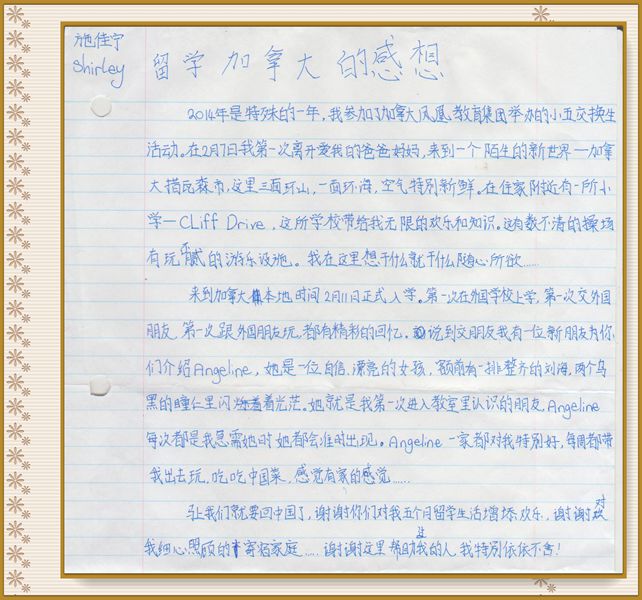 施佳宁
Shirley
留学加拿大的感想
2014年是特殊的一年，我参加了加拿大凤凰教育集团举办的小五交换生
活动。在2月7日我第一次离开爱我的爸爸妈妈，来到一个陌生的新世界—加拿
大措瓦森市，这里三面环山，一面环海，空气特别新鲜。在住家附近有一所小
学—CLiff Drive，这所学校带给我无限的欢乐和知识。这有数不清的操场
有玩不腻的游乐设施。我在这里想干什么就干什么随心所欲……
来到加拿大本地时间2月11日正式入学。第一次在外国学校上学，第一次交外国
朋友，第一次跟外国朋友玩，都有精彩的回忆。说到交朋友我有一位新朋友为你
们介绍Angeline，她是一位自信，漂亮的女孩，额前有一排整齐的刘海，两个乌
黑的瞳仁里闪着光芒。她就是我第一次进入教室里认识的朋友Angeline
每次都是我急需她时她都会准时出现。Angeline一家都对我特别好，每周都带
我出去玩，吃吃中国菜，感觉有家的感觉……
让我们就要回中国了，谢谢你们对我五个月留学生活增添欢乐，谢谢对
我细心照顾的寄宿家庭……谢谢这里帮助过我的人，我特别依依不舍！